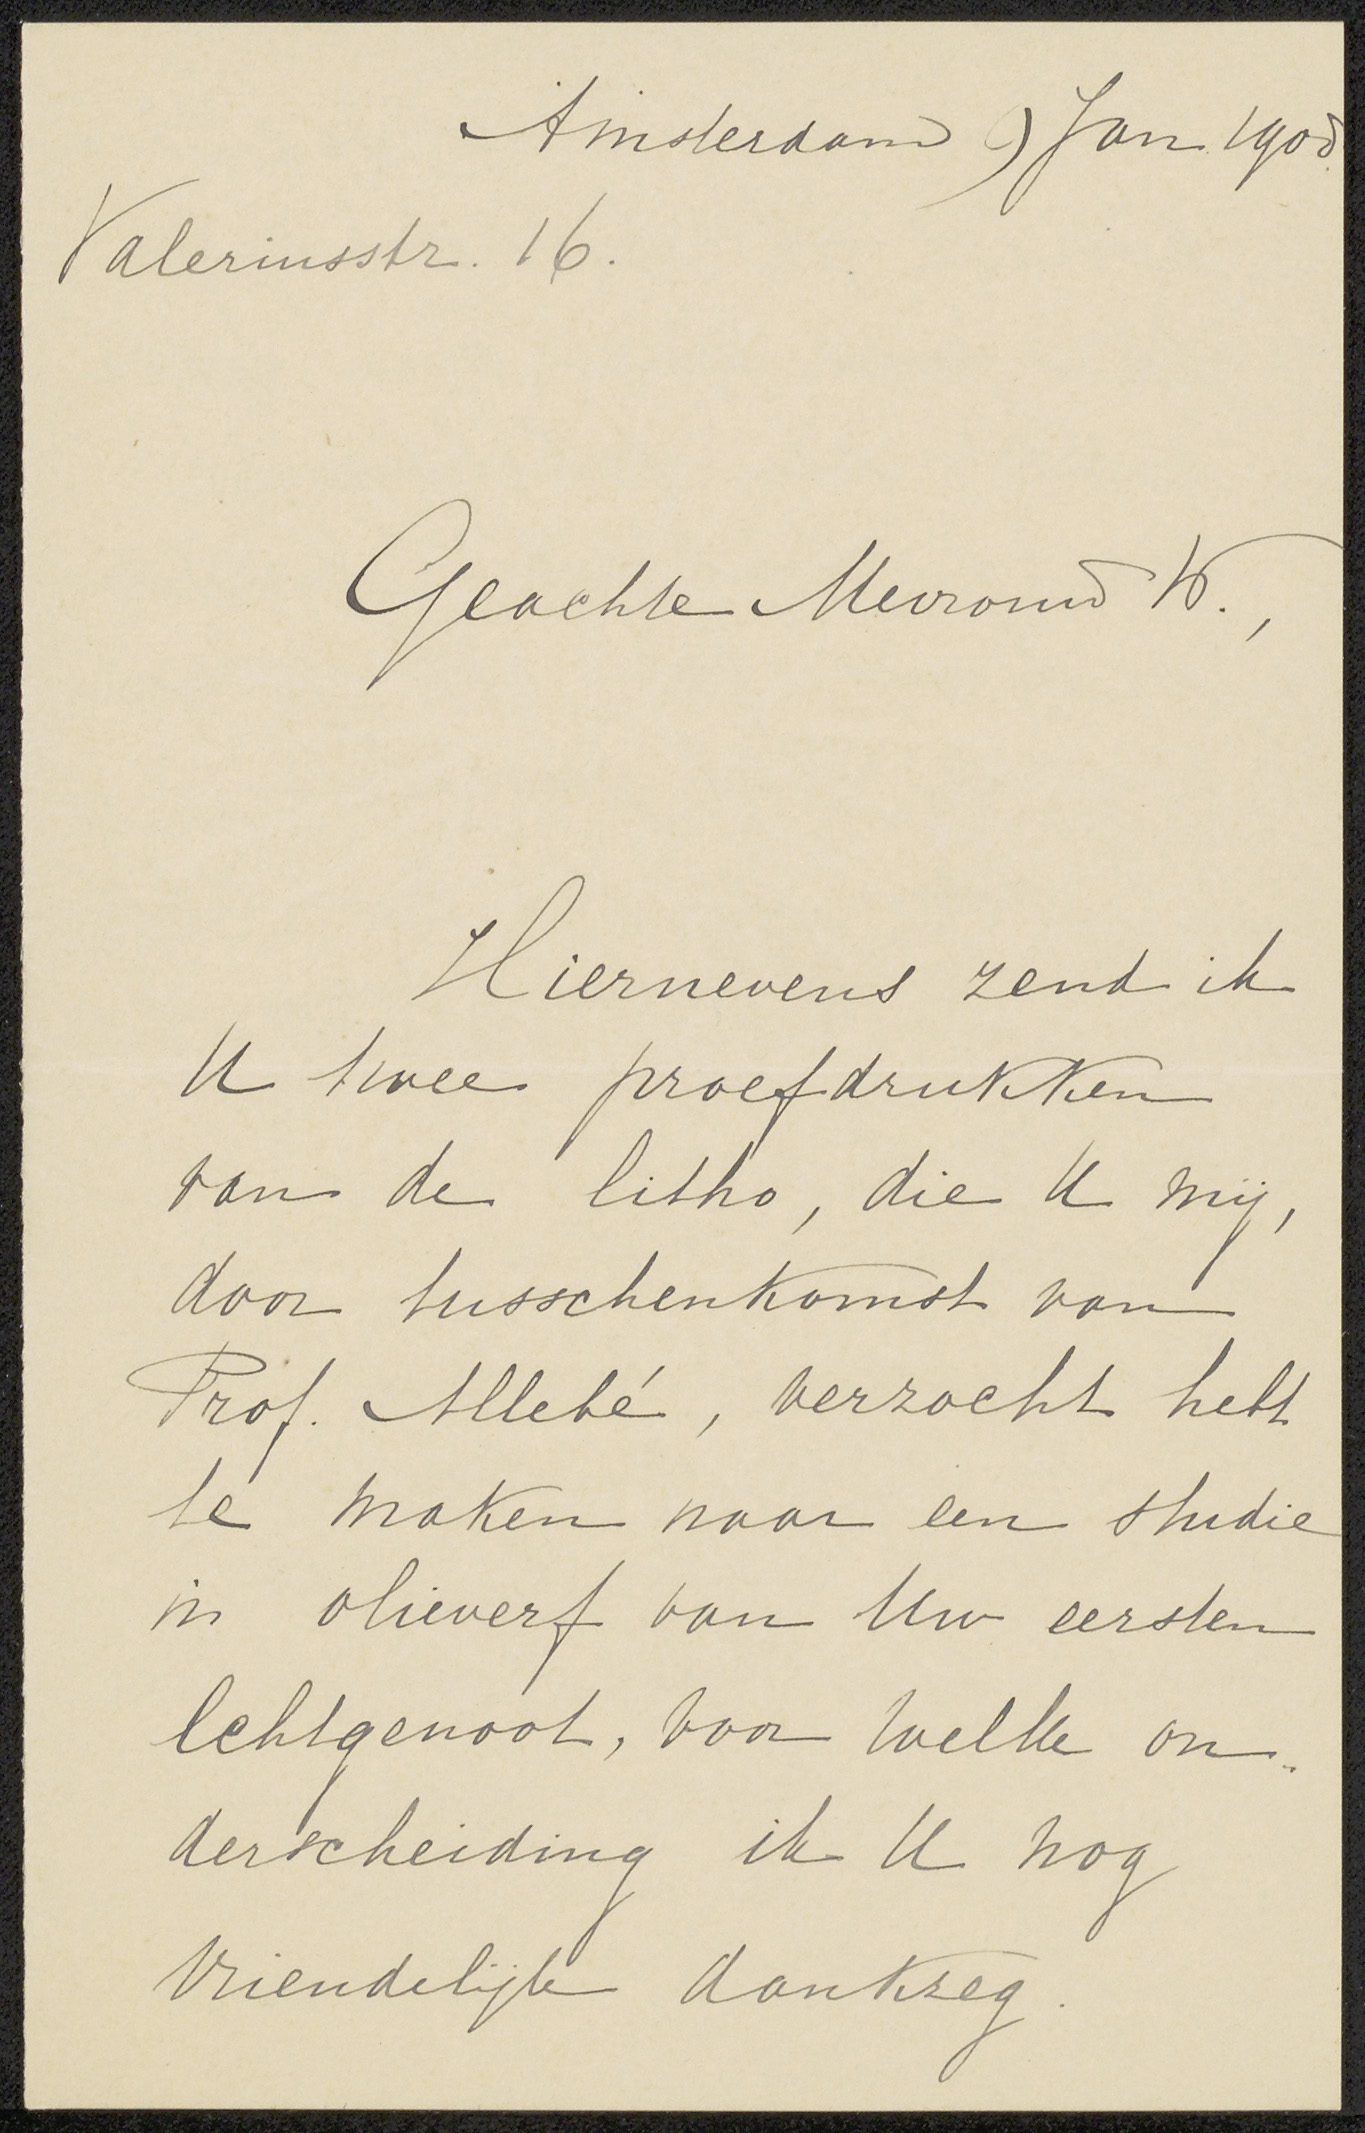 Amsterdam 9 Jan. 1908.
Valeriusstr. 16.
Geachte Mevrouw W.,
Hiernevens zend ik
U twee proefdrukken
van de litho, die U mij,
door tusschenkomst van
Prof. Allebé, verzocht hebt
te maken naar een studie
in olieverf van Uw eersten
Echtgenoot, voor welke on-
derscheiding ik U nog
vriendelijk dankzeg.